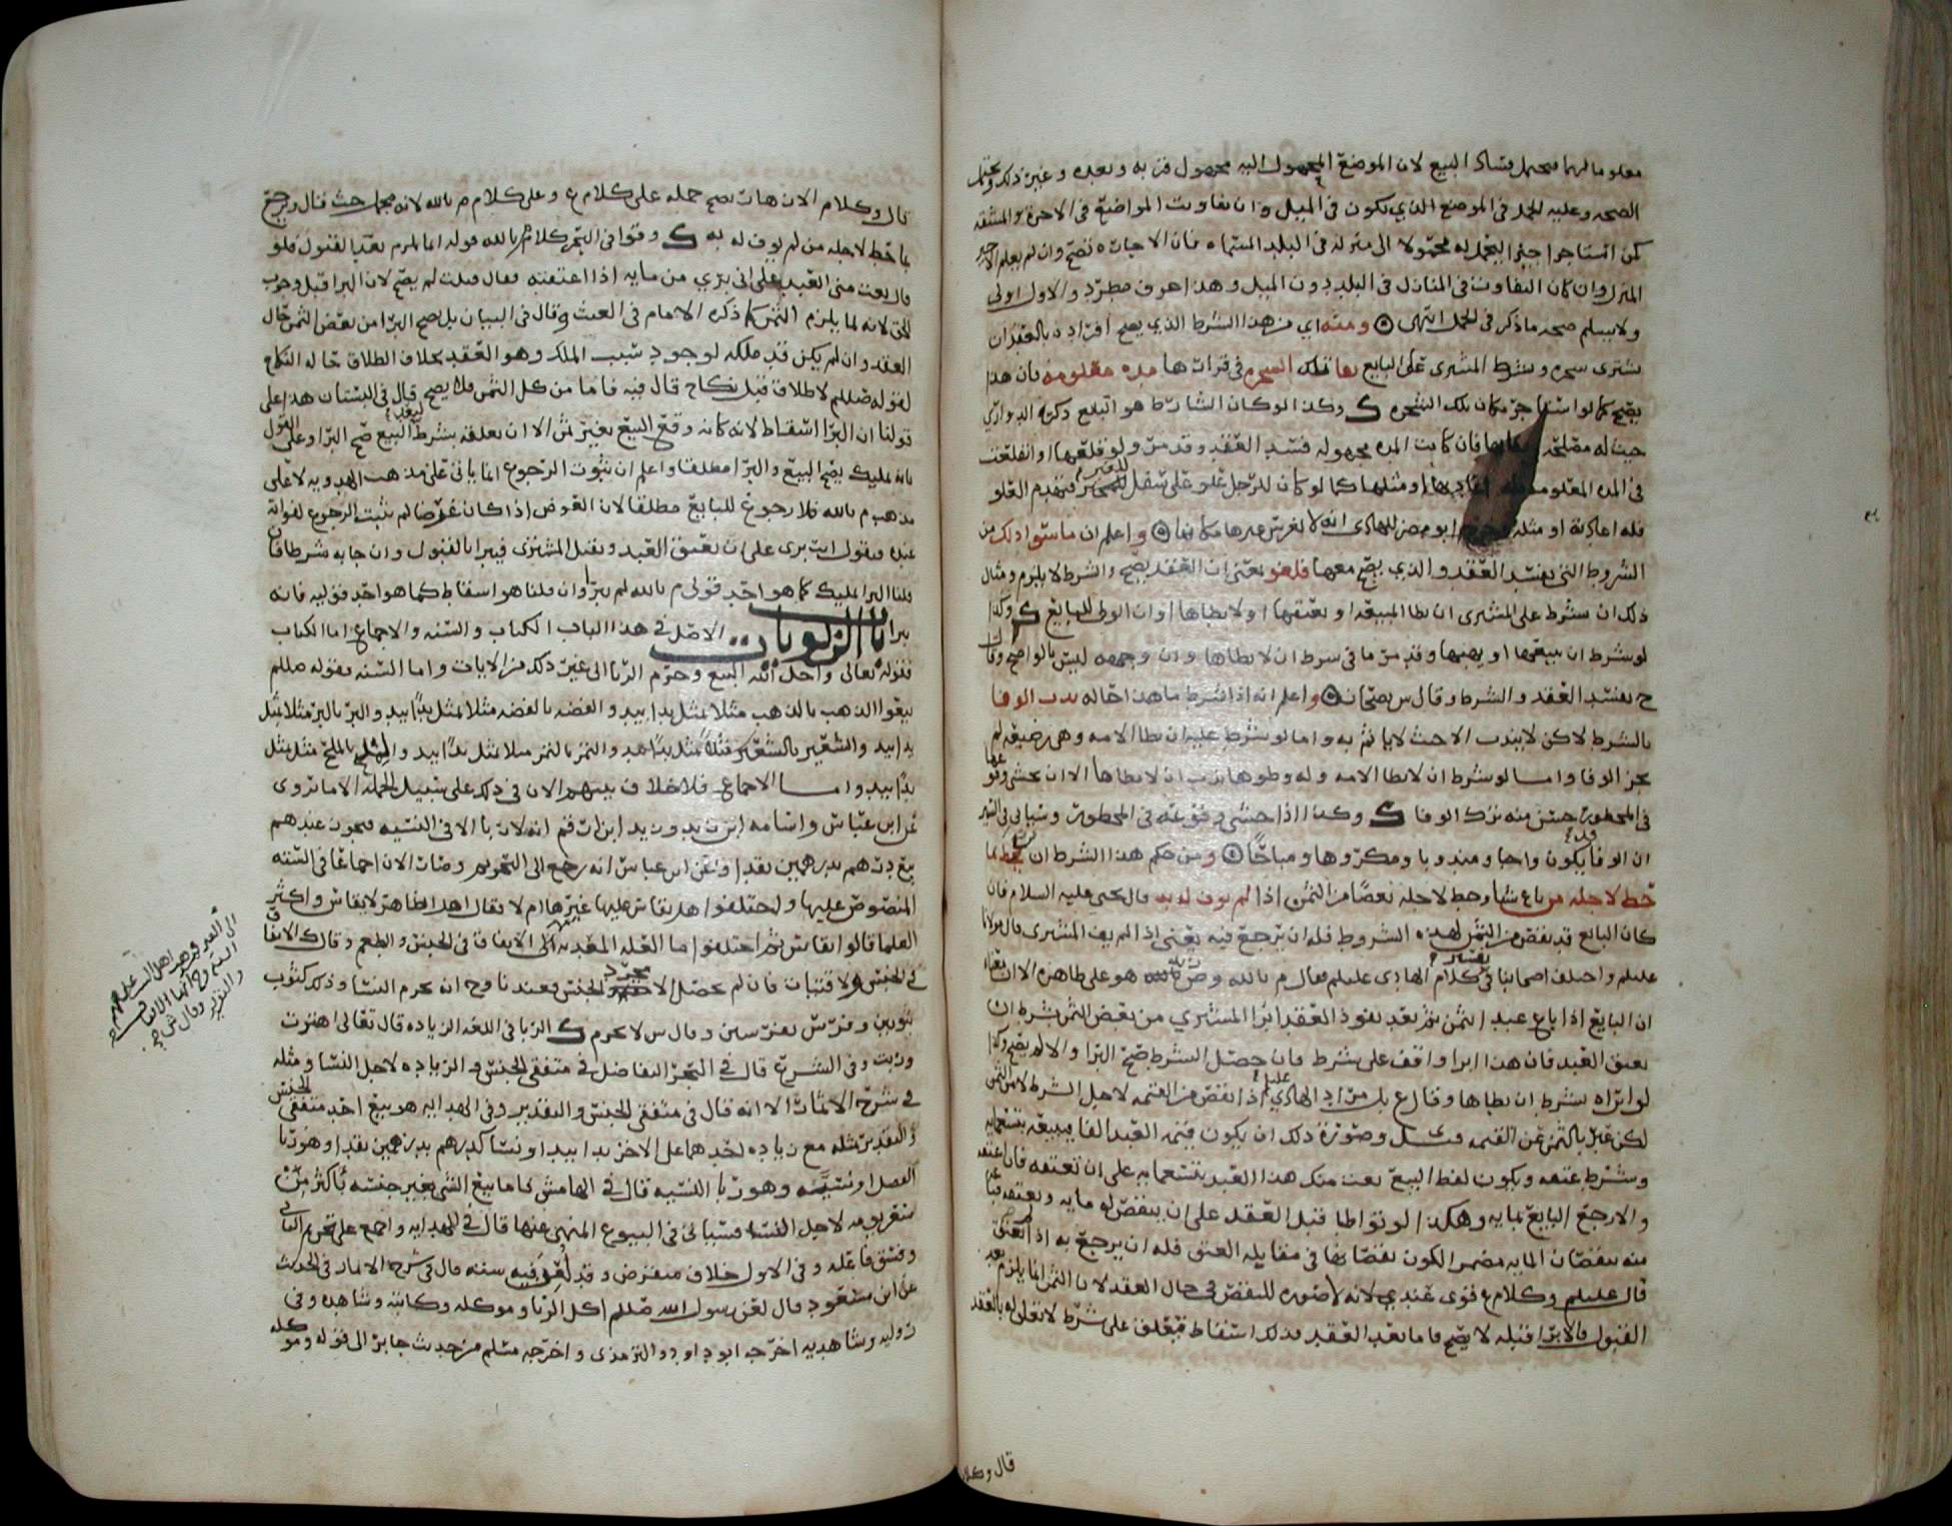 معلوما لهما فيحتمل فساد البيع لان الموضع المجهول اليه مجهول قربه وبعده وغير ذلك ويحتمل
الصحه وعليه الحمل في الموضع الذي يكون في الميل وان تفاوت المواضع في الاجرة والمشقه
كمن استاجر اجيرا ليحمل له محمولا الى منزله في البلد فان الاجاره تصح وان لم يعلم الاجير
المنزل وان كان التفاوت في المنازل في البلد دون الميل وهذا عرف مطرد والاول اولى
ولا يسلم صحه ما ذكر في الحمل انتهى ومنه اي من هذا الشرط الذي يصح افراده بالعقد ان
يشتري شجره وشرط المشتري على البايع بقا الشجره في قرارها مده معلومه فان هذا
يصح كما لو استاجر مكان تلك الشجره وكذا لو كان الشارط هو البايع ذكره الدواري
حيث له مصلحه فان كانت المده مجهوله فسد العقد وقد مر ولو قلعها او انقلعت
في المده المعلومه او مثلها كما لو كان لرجل علو على سفل فتهدم العلو
فله اعادته او مثله ابو مضر للهادي انه لا يغرس غيرها مكانها واعلم ان ما سوا ذلك من
الشروط التي يفسد العقد والذي يصح معها فلغو يعني ان العقد يصح والشرط لا يلزم ومثال
ذلك ان شرط على المشتري ان يطا المبيعه او يعتقها او لا يطاها او ان الوطي للبايع وكذا
لو شرط ان يبيعها او يهبها وقد مر ما في شرط ان لا يطاها وان وجهه ليس بالواضح وقال
ح يفسد العقد والشرط وقال س يصحان واعلم انه اذا شرط ما هذا حاله ندب الوفا
بالشرط لاكن لا يندب الا حيث لا ياثم به واما لو شرط عليه ان يطا الامه وهي رضيعه لم
يجز الوفا واما لو شرط ان لا يطا الامه وله وطوها ندب ان لا يطاها الا ان يخشى وقوعها
في المحظور حسن منه ترك الوفا وكذا اذا خشي وقوعه في المحظور وسياتي في السير
ان الوفا قد يكون واجبا ومندوبا ومكروها ومباحا ومن حكم هذا الشرط ان يرجع بما
حط لاجله من باع شيا وحط لاجله بعضا من الثمن اذا لم يوف له به قال يحيى عليه السلام فان
كان البايع قد نقص من الثمن لهذه الشروط فله ان يرجع فيه يعني اذا لم يف المشتري قال مولانا
عليلم واختلف اصحابنا في تفسير كلام الهادي عليلم فقال م بالله وض زيد هو على ظاهره الا ان معناه
ان البايع اذا باع عبدا بثمن ثم بعد نفوذ العقد ابرا المشتري من بعض الثمن بشرط ان
يعتق العبد فان هذا ابرا واقف على شرط فان حصل الشرط صح البرا والا لم يصح وكذا
لو ابراه بشرط ان يطاها وقال ع بل مراد الهادي عليلم اذا نقص من القيمه لاجل الشرط لا من الثمن
لكن عبر بالثمن عن القيمه وصورة ذلك ان يكون قيمه العبد الفا فيبيعه بتسعمايه
وشرط عتقه ويكون لفظ البيع بعت منك هذا العبد بتسعمايه على ان تعتقه فان اعتقه
والا رجع البايع بمايه وهكذا لو تواطيا قبل العقد على ان ينقص له مايه ويعتقه
منه بنقصان المايه مضمر الكون نقصانها في مقابله العتق فله ان يرجع به اذا لم يعتق
قال عليلم وكلام ع قوي عندي لانه لا صوره للنقص في حال العقد لان الثمن انما يلزم بعد
القبول فالابرا قبله لا يصح فاما بعد العقد فذلك اسقاط فيعلق على شرط لا تعلق له بالعقد
قال وكلام
قال وكلام الانهات يصح حمله على كلام ع وعلى كلام م بالله لانه مجمل حيث قال ويرجع
بما حط لاجله من لم يوف له به وقوا في التجر كلام م بالله قوله انما يلزم بعد القبول فلو
قال بعت مني العبد على اني بري من مايه اذا اعتقته فقال قبلت لم يصح لان البرا قبل وجوب
الحق لانه لما يلزم الثمن كما ذكره الامام في الغيث وقال في البيان بل يصح البرا من بعض الثمن حال
العقد وان لم يكن قد ملكه لوجود سبب الملك وهو العقد بخلاف الطلاق حاله النكاح
لقوله صللم لا طلاق قبل نكاح قال فيه فاما من كل الثمن فلا يصح قال في البستان هذا على
قولنا ان البرا اسقاط لانه كانه وقع البيع بغير ثمن الا ان يعلقه بشرط البيع صح البرا وعلى القول
بانه تمليك يصح البيع والبرا مطلقا واعلم ان ثبوت الرجوع انما ياتي على مذهب الهدويه لا على
مذهب م بالله فلا رجوع للبايع مطلقا لان الغرض اذا كان عرضا لم يثبت الرجوع لفواته
عنده فيقول انت بري على ان تعتق العبد ويقبل المشتري فيبرا بالقبول وان جا به شرطا فان
قلنا البرا تمليك كما هو احد قولي م بالله لم يبرا وان قلنا هو اسقاط كما هو احد قوليه فانه
يبرا باب الربويات الاصل في هذا الباب الكتاب والسنه والاجماع اما الكتاب
فقوله تعالى واحل الله البيع وحرم الربا الى غير ذلك من الايات واما السنه فقوله صللم
بيعوا الذهب بالذهب مثلا بمثل يدا بيد والفضه بالفضه مثلا بمثل يدا بيد والبر بالبر مثلا بمثل
يدا بيد والشعير بالشعير مثلا بمثل يدا بيد والتمر بالتمر مثلا بمثل يدا بيد والملح بالملح مثلا بمثل
يدا بيد واما الاجماع فلا خلاف بينهم الان في ذلك على سبيل الجمله الا ما تروى
عن ابن عباس واسامه ابن زيد وزيد ابن ارقم انه لا ربا الا في النسيه فيجوز عندهم
بيع درهم بدرهمين نقدا وعن ابن عباس انه رجع الى التحريم وصار الان اجماعا في السته
المنصوص عليها واختلفوا هل يقاس عليها غيرها ام لا فقال اهل الظاهر لا يقاس واكثر
العلما قالوا يقاس ثم اختلفوا ما العله المعديه الى الاتفاق في الجنس والطعم وقال ك الاتفاق
في الجنس والاقتيات فان لم يحصل الا مجرد الجنس فعندنا وح انه يحرم النسا وذلك كثوب
بثوبين وفرس بفرسين وقال س لا يحرم الربا في اللغه الزياده قال تعالى اهتزت
وربت وفي الشرع قال في البحر التفاضل في متفقي الجنس والزياده لاجل النسا ومثله
في شرح الاثمار الا انه قال في متفقي الجنس والتقدير وفي الهدايه هو بيع احد متفقي الجنس
والتقدير بمثله مع زياده لاحدهما على الاخر يدا بيد او نسا كدرهم بدرهمين نقدا وهو ربا
الفضل او نسيئه وهو ربا النسيه قال في الهامش فاما بيع الشي بغير جنسه باكثر من
سعر يومه لاجل النسا فسياتي في البيوع المنهي عنها قال في الهدايه واجمع على تحريم الثاني
وفسق فاعله وفي الاول خلاف منقرض وقد لعن فيه ستة قال في شرح الاثمار في الحديث
عن ابن مسعود قال لعن رسول الله صللم اكل الربا وموكله وكاتبه وشاهده وفي
روايه وشاهديه اخرجه ابو داود والترمذي واخرجه مسلم من حديث جابر الى قوله وموكله